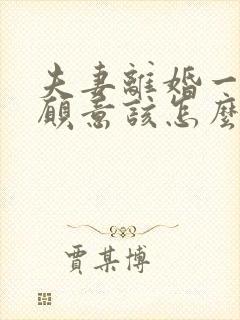 夫妻離婚一
願意該怎麼
賈某博